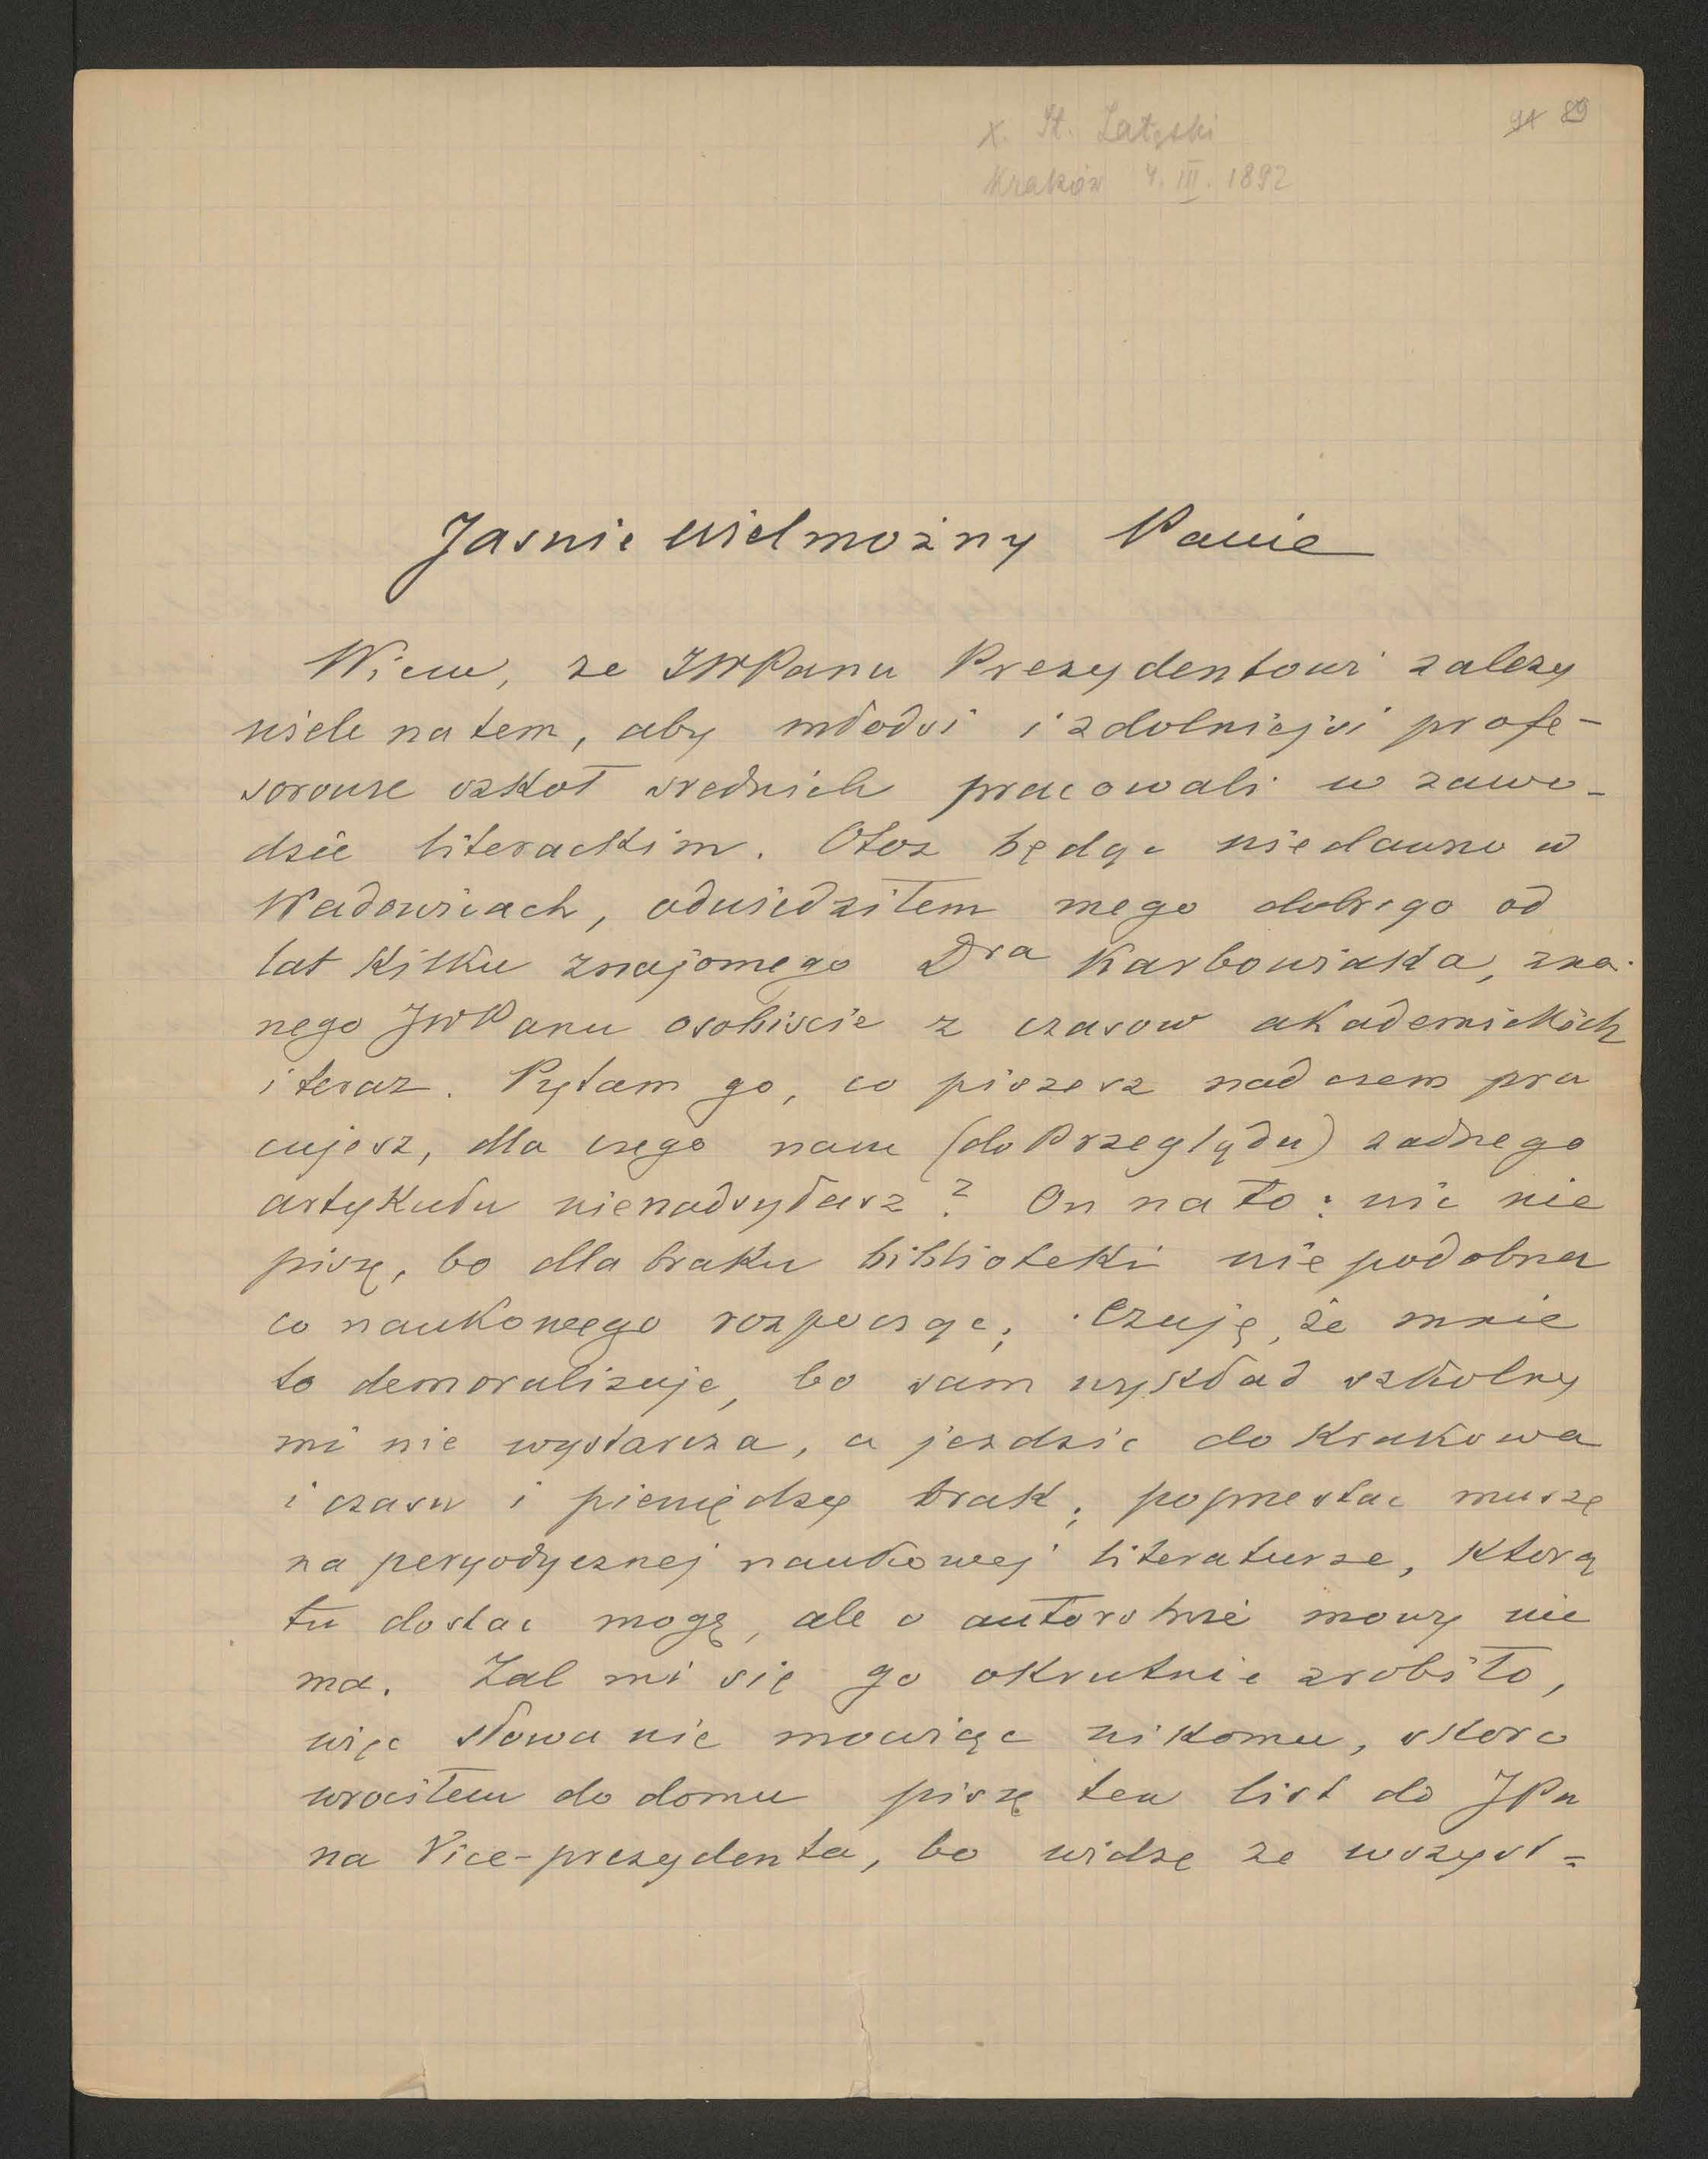 X. St. Załęski
91 89
Kraków 4. III. 1892
Jasnie Wielmożny Panie
Wiem, ze JWPanu Prezydentowi zalezy
wiele na tem, aby młodsi i zdolniejsi profe-
sorowie szkoł srednich pracowali w zawo-
dzie literackim. Otoz będąc niedawno w
Wadowicach, odwiedziłem mego dobrego od
lat kilku znajomego Dra Karbowiaka, zna-
nego JWPanu osobiscie z czasow akademickich
i teraz. Pytam go, co piszesz nad czem pra
cujesz, dla czego nam (do Przeglądu) zadnego
artykułu nienadsyłasz? On na to: nic nie
piszę, bo dla braku biblioteki nie podobna
co naukowego rozpocząc; czuję, że mnie
to demoralizuje, bo sam wykład szkolny
mi nie wystarcza, a jezdzic do Krakowa
i czasu i pieniędzy brak; poprzestac muszę
na peryodycznej naukowej literaturze, ktorą
tu dostac mogę, ale o autorstwie mowy nie
ma. Zal mi się go okrutnie zrobiło,
więc słowa nie mowiąc nikomu, skoro
wrociłem do domu piszę ten list do JPa
na Vice-prezydenta, bo widzę ze wszyst=